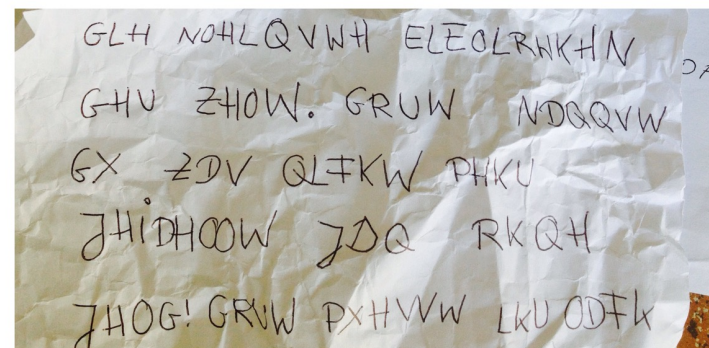 GLH NOHLQVWH ELEOLRWKHN
GHU ZHOW. GRUW NDQQVW
GX ZDV QLFKW PHKU
JHiDHOOW JDQ RKQH
JHOG! GRUW PXHVVW LKU ODFK